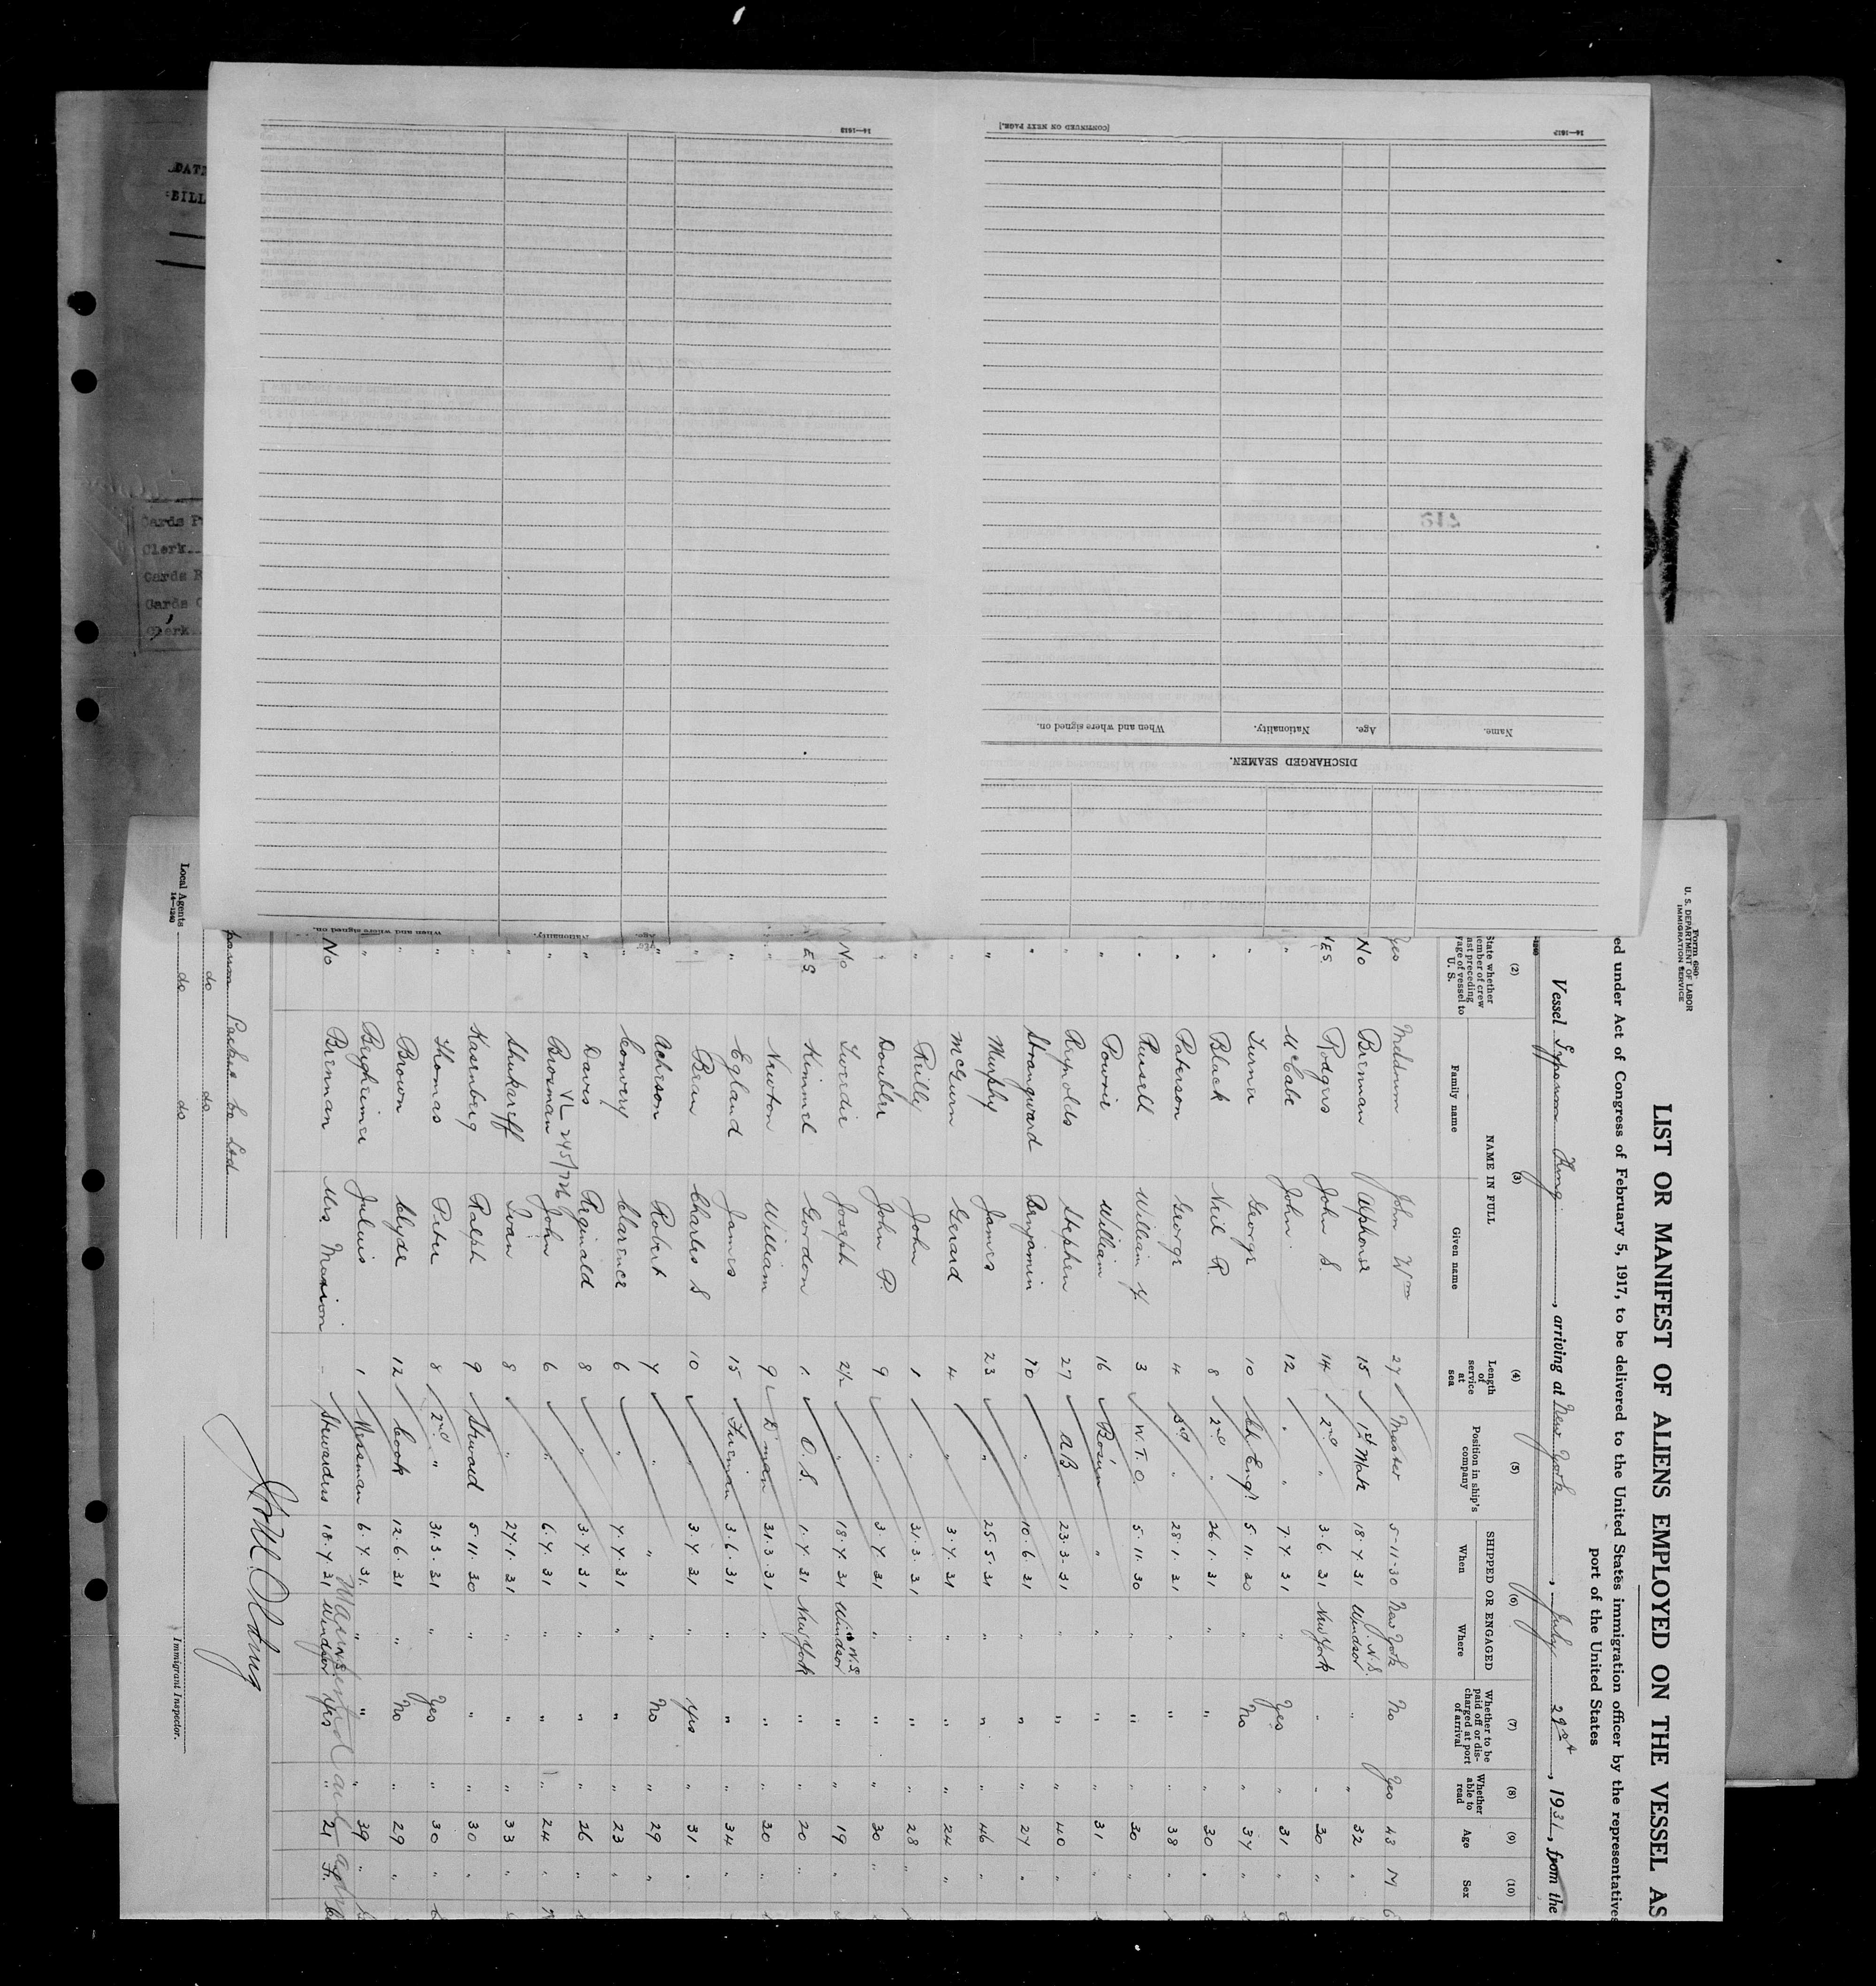 Form 680
U. S. DEPARTMENT OF LABOR
IMMIGRATION SERVICE
LIST OR MANIFEST OF ALIENS EMPLOYED ON THE VESSEL AS
ed under Act of Congress of February 5, 1917, to be delivered to the United States immigration officer by the representatives
port of the United States
Vessel King, arriving at New York, July 29, 1931, from the
(2) (3) (4) (5) (6) (7) (8) (9) (10)
NAME IN FULL
SHIPPED OR ENGAGED
Family name Given name Length of service at sea Position in ship's company When Where Whether to be paid off or discharged at port of arrival Whether able to read Age Sex
Yes John Wm 27 Master 5-11-30 New York No Yes 43 M
No Brennan Alphonse 15 1st Mate 18.7.31 Windsor N.S. " " 32 "
ES Rodgers John S. 14 2nd " 3.6.31 New York " " 30 "
" McCabe John 12 " " 7.7.31 " Yes " 31 "
" Turner George 10 Ch Engr 5.11.30 " No " 37 "
" Black Neil R. 8 2nd " 26.1.31 " " " 30 "
" Paterson George 4 3rd " 28.1.31 " " " 38 "
" Russell William Y. 3 W.T.O. 5.11.30 " " " 30 "
" Powrie William 16 Bosun " " " " 31 "
" Reynolds Stephen 27 AB 23.3.31 " " " 40 "
" Strangward Benjamin 10 " 10.6.31 " " " 27 "
" Murphy James 23 " 25.5.31 " " " 46 "
McGurn Gerard 4 3.7.31 " " " 24 "
" Reilly John 1 " 31.3.31 " " " 28 "
" Doublee John P. 9 " 3.7.31 " " " 30 "
No Tweedie Joseph 2½ " 18.7.31 Windsor N.S. " " 19 "
ES Kimmel Gordon 1 O.S. 1.7.31 New York " " 20 "
" Newton William 9 D'man 31.3.31 " " " 30 "
" Egland James 15 Fireman 3.6.31 " " " 34 "
Bean Charles S 10 " 3.7.31 " Yes " 31 "
" Acheson Robert 7 " " " No " 29 "
Convery Clarence 6 " 7.7.31 " " " 23 "
" Davis Reginald 8 " 3.7.31 " " " 26 "
VL 245/726
" Brosman John 6 " 6.7.31 " " " 24 "
" Shukareff Ivan 8 " 27.1.31 " " " 33 "
Kasenberg Ralph 9 Steward 5.11.30 " " " 30 "
Thomas Peter 8 2nd " 31.3.31 " Yes " 30 "
" Brown Clyde 12 Cook 12.6.31 " No " 29 "
" Bergheimer Julius 1 Messman 6.7.31. " " " 39 "
No Brennan Mrs. Marion - Stewardess 18.7.31 Windsor Yes " 21 F.
Packet Co Ltd
do do
Local Agents do do
14-1240
Immigrant Inspector.
14—1613
[CONTINUED ON NEXT PAGE.]
DISCHARGED SEAMEN.
Name. Age. Nationality. When and where signed on.
14—1613
Age. Nationality. When and where signed on.
BILL
Clerk
Clerk